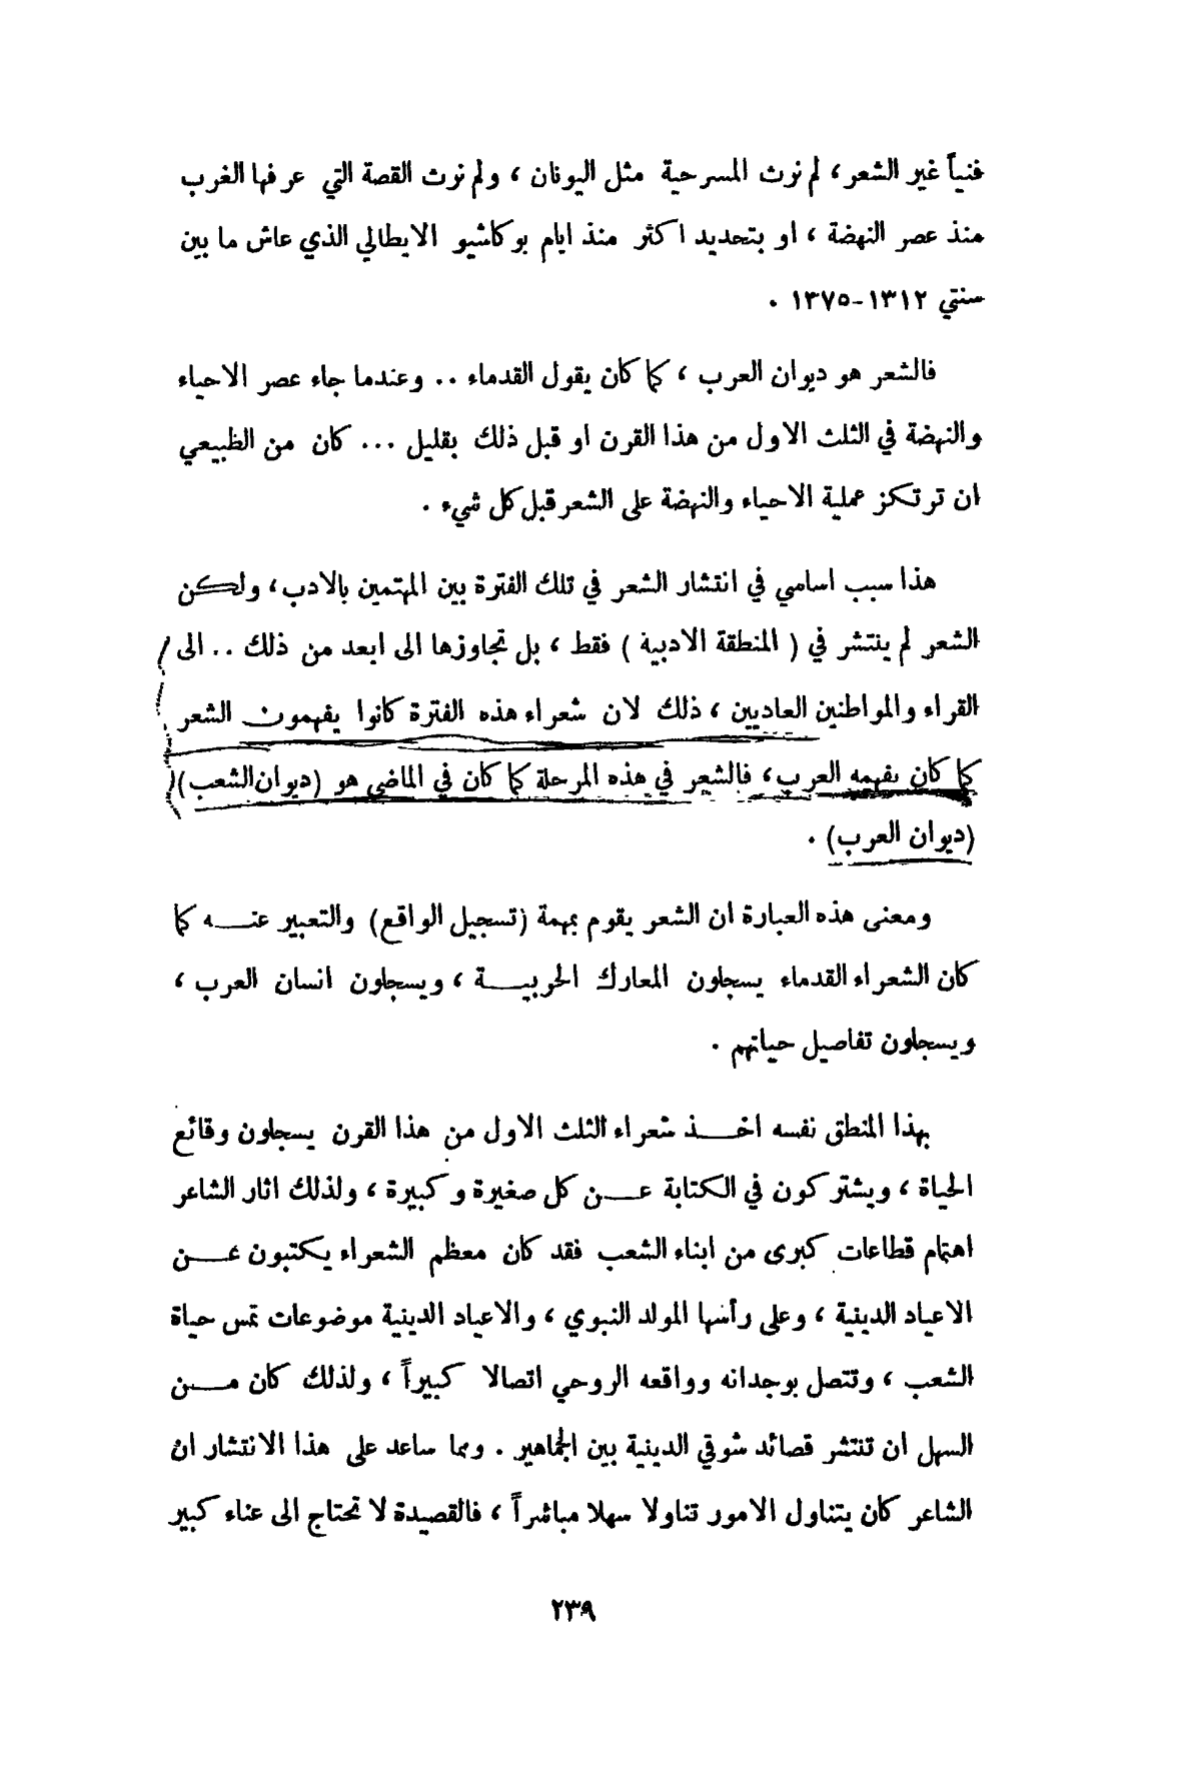 فنياً غير الشعر، لم نرث المسرحية مثل اليونان ، ولم نرث القصة التي عرفها الغرب
منذ عصر النهضة ، او بتحديد اكثر منذ ايام بوكاشيو الايطالي الذي عاش ما بين
سنتي ١٣١٢-١٣٧٥ .
فالشعر هو ديوان العرب ، كما كان يقول القدماء .. وعندما جاء عصر الاحياء
والنهضة في الثلث الاول من هذا القرن او قبل ذلك بقليل ... كان من الطبيعي
ان ترتكز عملية الاحياء والنهضة على الشعر قبل كل شيء .
هذا سبب اساسي في انتشار الشعر في تلك الفترة بين المهتمين بالادب، ولكن
الشعر لم ينتشر في ( المنطقة الادبية ) فقط ، بل تجاوزها الى ابعد من ذلك .. الى
القراء والمواطنين العاديين ، ذلك لان شعراء هذه الفترة كانوا يفهمون الشعر
كما كان يفهمه العرب، فالشعر في هذه المرحلة كما كان في الماضي هو (ديوان الشعب)
(ديوان العرب) .
ومعنى هذه العبارة ان الشعر يقوم بمهمة (تسجيل الواقع) والتعبير عنـــه كما
كان الشعراء القدماء يسجلون المعارك الحربيـــة ، ويسجلون انسان العرب ،
ويسجلون تفاصيل حياتهم .
بهذا المنطق نفسه اخـــذ شعراء الثلث الاول من هذا القرن يسجلون وقائع
الحياة ، ويشتركون في الكتابة عـــن كل صغيرة وكبيرة ، ولذلك اثار الشاعر
اهتمام قطاعات كبرى من ابناء الشعب فقد كان معظم الشعراء يكتبون عـــن
الاعياد الدينية ، وعلى رأسها المولد النبوي ، والاعياد الدينية موضوعات تمس حياة
الشعب ، وتتصل بوجدانه وواقعه الروحي اتصالا كبيراً ، ولذلك كان مـــن
السهل ان تنتشر قصائد شوقي الدينية بين الجماهير . ومما ساعد على هذا الانتشار ان
الشاعر كان يتناول الامور تناولا سهلا مباشراً ، فالقصيدة لا تحتاج الى عناء كبير
٢٣٩